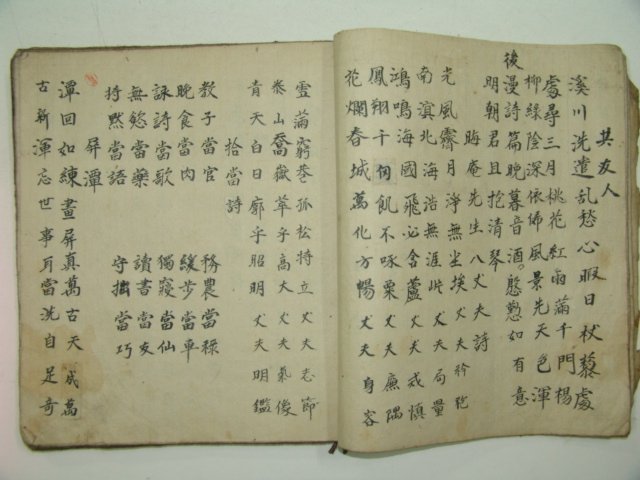 其友人
溪川洗遣乱愁心暇日杖藜處
處尋三月桃花紅雨滿千門楊
柳綠陰深依俙風景先天色渾
漫詩篇晚暮音酒慇懃如有意
後
明朝君且抱清琴
晦庵先生八丈夫詩
光風霽月淨無尘埃丈夫衿
南溟北海浩無涯此丈夫局量
鴻鳴海國飛必含蘆丈夫戒慎
鳳翔千仞飢不啄粟丈夫廉隅
花爛春城萬化方暢丈夫身容
雪滿窮壑孤松特立丈夫志節
泰山喬嶽萃乎高大丈夫氣像
青天白日廓乎昭明丈夫明鑑
拾當詩
教子當官 務農當祿
晚食當肉 緩步當車
詠詩當歌 獨寢當仙
無慾當藥 讀書當友
持黙當語 守拙當巧
屏潭
潭回如練畫屏真萬古天成萬
古新渾忘世事耳當洗自足奇